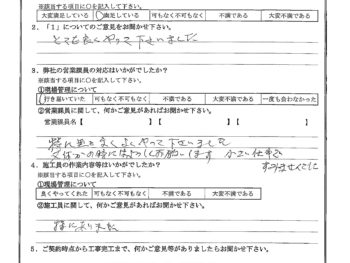 ※該当する項目に○を記入して下さい。
大変満足している 満足している 可もなく不可もなく 不満である 大変不満である
2．「1」についてのご意見をお聞かせ下さい。
とても良くやって下さいました
3．弊社の営業課員の対応はいかがでしたか？
※該当する項目に○を記入して下さい。
①現場管理について
行き届いていた 可もなく不可もなく 不満である 大変不満である 一度も会わなかった
②営業課員に関して、何かご意見があればお聞かせ下さい。
営業課員名【 】【 】【 】
良くやって下さいまして
4．施工員の作業内容等はいかがでしたか？
※該当する項目に○を記入して下さい。
①現場管理について
良くやってくれた 可もなく不可もなく 不満である 大変不満である
②施工員に関して、何かご意見があればお聞かせ下さい。
特に
5．ご契約時点から工事完工まで、何かご意見等がありましたらお聞かせ下さい。